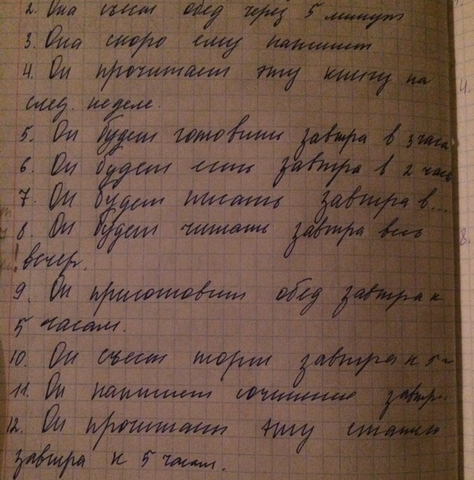 2. Она съест обед через 5 минут
3. Она скоро ему напишет
4. Он прочитает эту книгу на
след. неделе.
5. Он будет готовить завтра в 3 часа
6. Он будет есть завтра в 2 часа
7. Он будет писать завтра в...
8. Он будет читать завтра весь
вечер.
9. Он приготовит обед завтра к
5 часам.
10. Он съест торт завтра к 5
11. Он напишет сочинение завтра
12. Он прочитает эту статью
завтра к 5 часам.